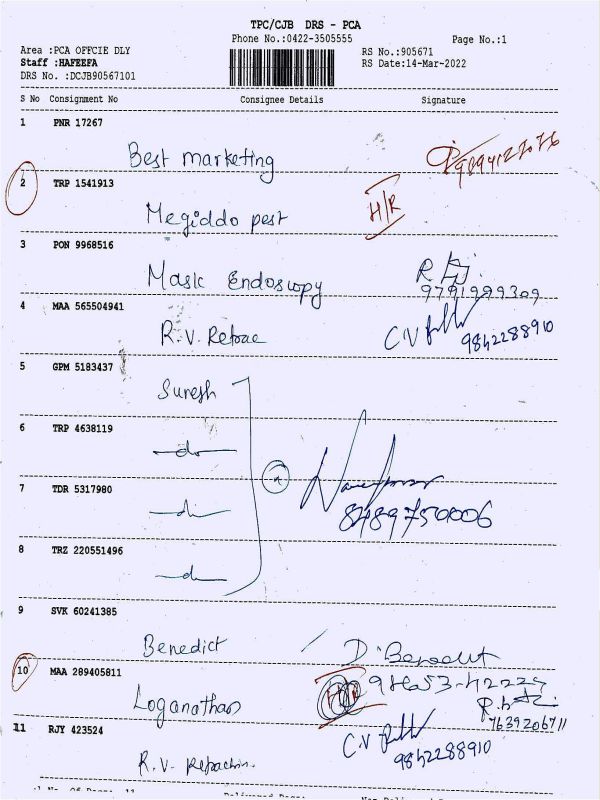 TPC/CJB DRS - PCA
Phone No.:0422-3505555 Page No.:1
Area :PCA OFFCIE DLY RS No.:905671
Staff :HAFEEFA RS Date:14-Mar-2022
DRS No. :DCJB90567101
S No Consignment No Consignee Details Signature
1 PNR 17267
Best marketing 9894127076
2 TRP 1541913
Megiddo pest H/R
3 PON 9968516
Mask Endoscopy R.
9791999309
4 MAA 565504941
R.V. C.V 9842288910
5 GPM 5183437
Suresh
6 TRP 4638119
-do-
7 TDR 5317980
8489750006
8 TRZ 220551496
9 SVK 60241385
Benedict D. Benedict
10 MAA 289405811
Loganathan 7639206711
11 RJY 423524
R.V. C.V 9842288910